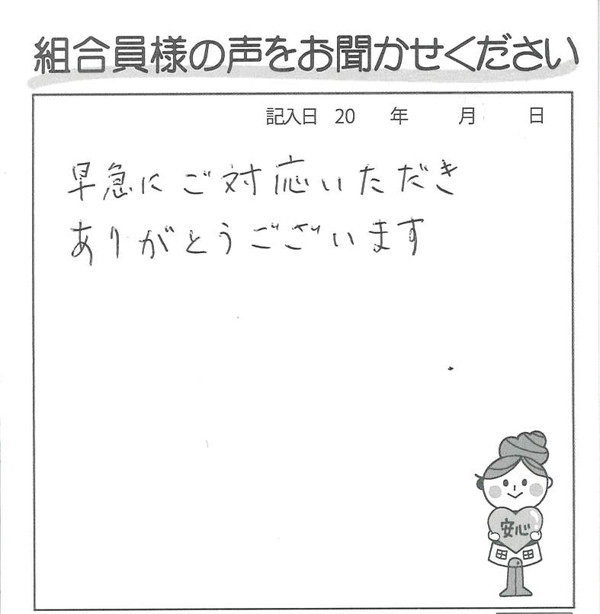 組合員様の声をお聞かせください
記入日 20 年 月 日
早急にご対応いただき
ありがとうございます
安心